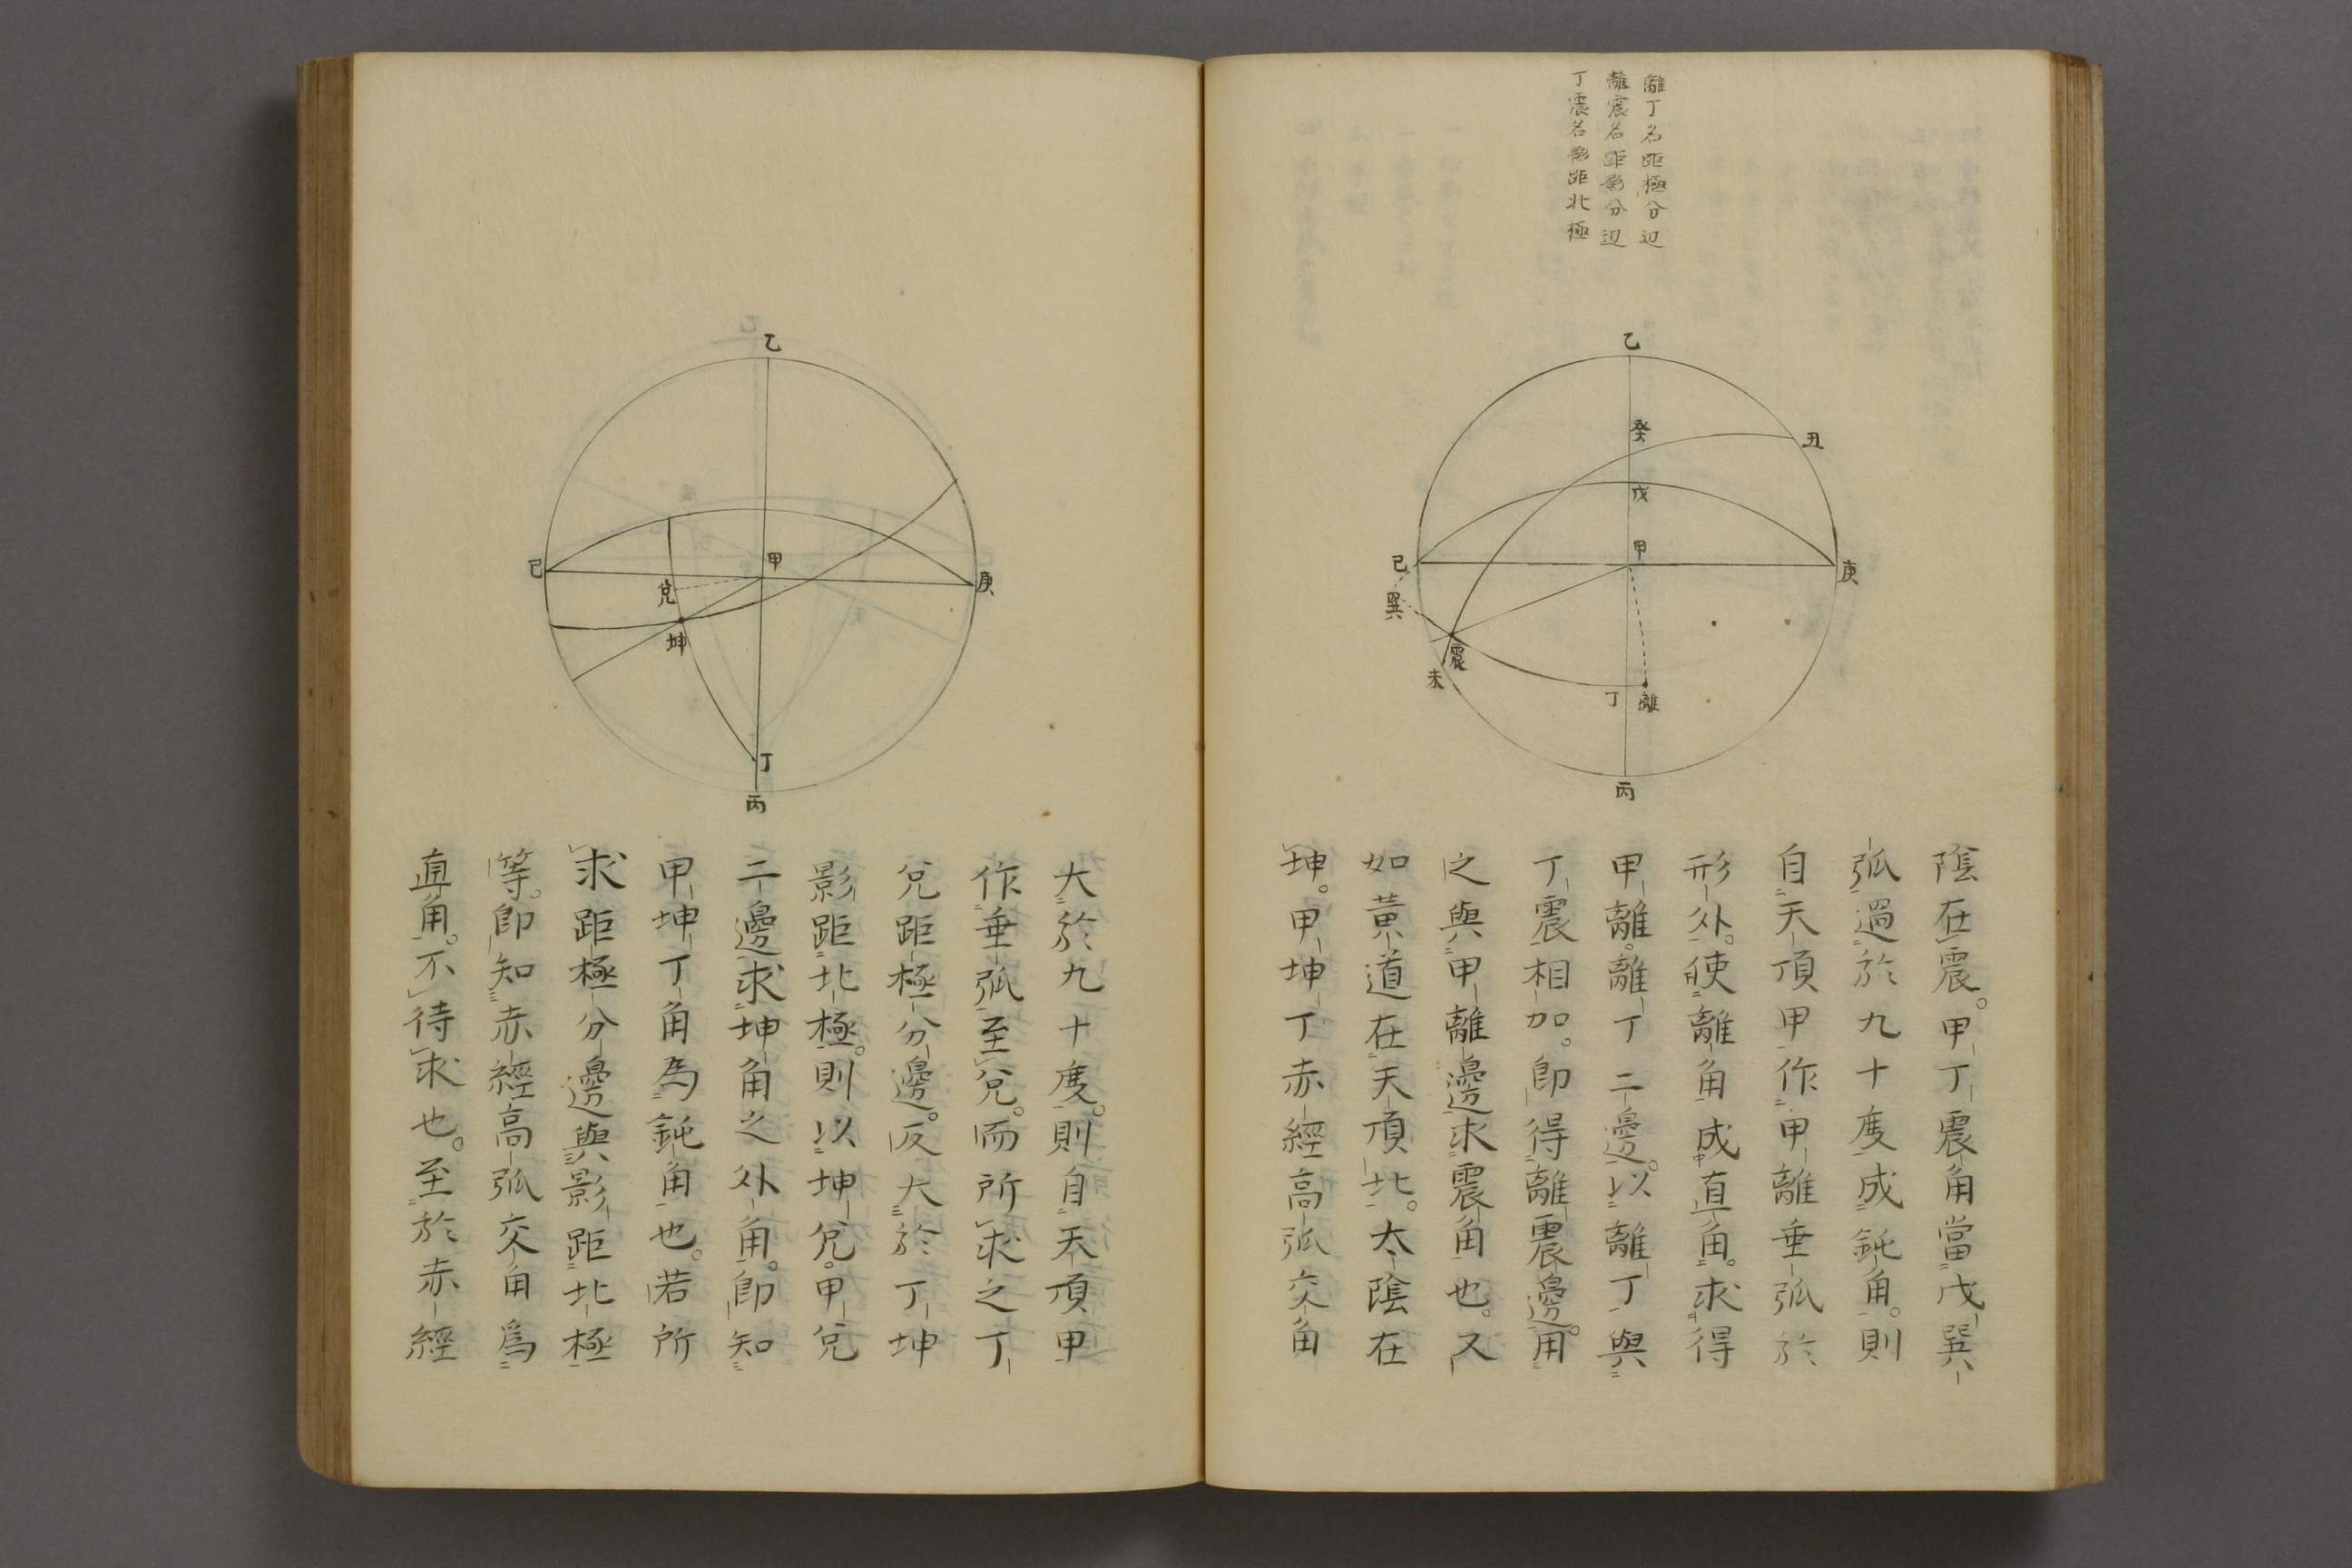 離丁名距極分辺
離震名距影分辺
丁震名影距北極
乙
癸
丑
戊
甲
己
庚
巽
震
未
丁
離
丙
陰在震。甲丁震角當戊巽
弧過於九十度成鈍角。則
自天頂甲作甲離垂弧於
形外。使離角成直角。求得
甲離。離丁二邊。以離丁與
丁震相加。即得離震邊。用
之與甲離邊求震角也。又
如黃道在天頂北。太陰在
坤。甲坤丁赤經高弧交角
乙
甲
己
庚
兌
坤
丁
丙
大於九十度。則自天頂甲
作垂弧至兌。而所求之丁
兌距極分邊。反大於丁坤
影距北極。則以坤兌。甲兌
二邊求坤角之外角。即知
甲坤丁角為鈍角也。若所
求距極分邊與影距北極
等。即知赤經高弧交角爲
直角。不待求也。至於赤經